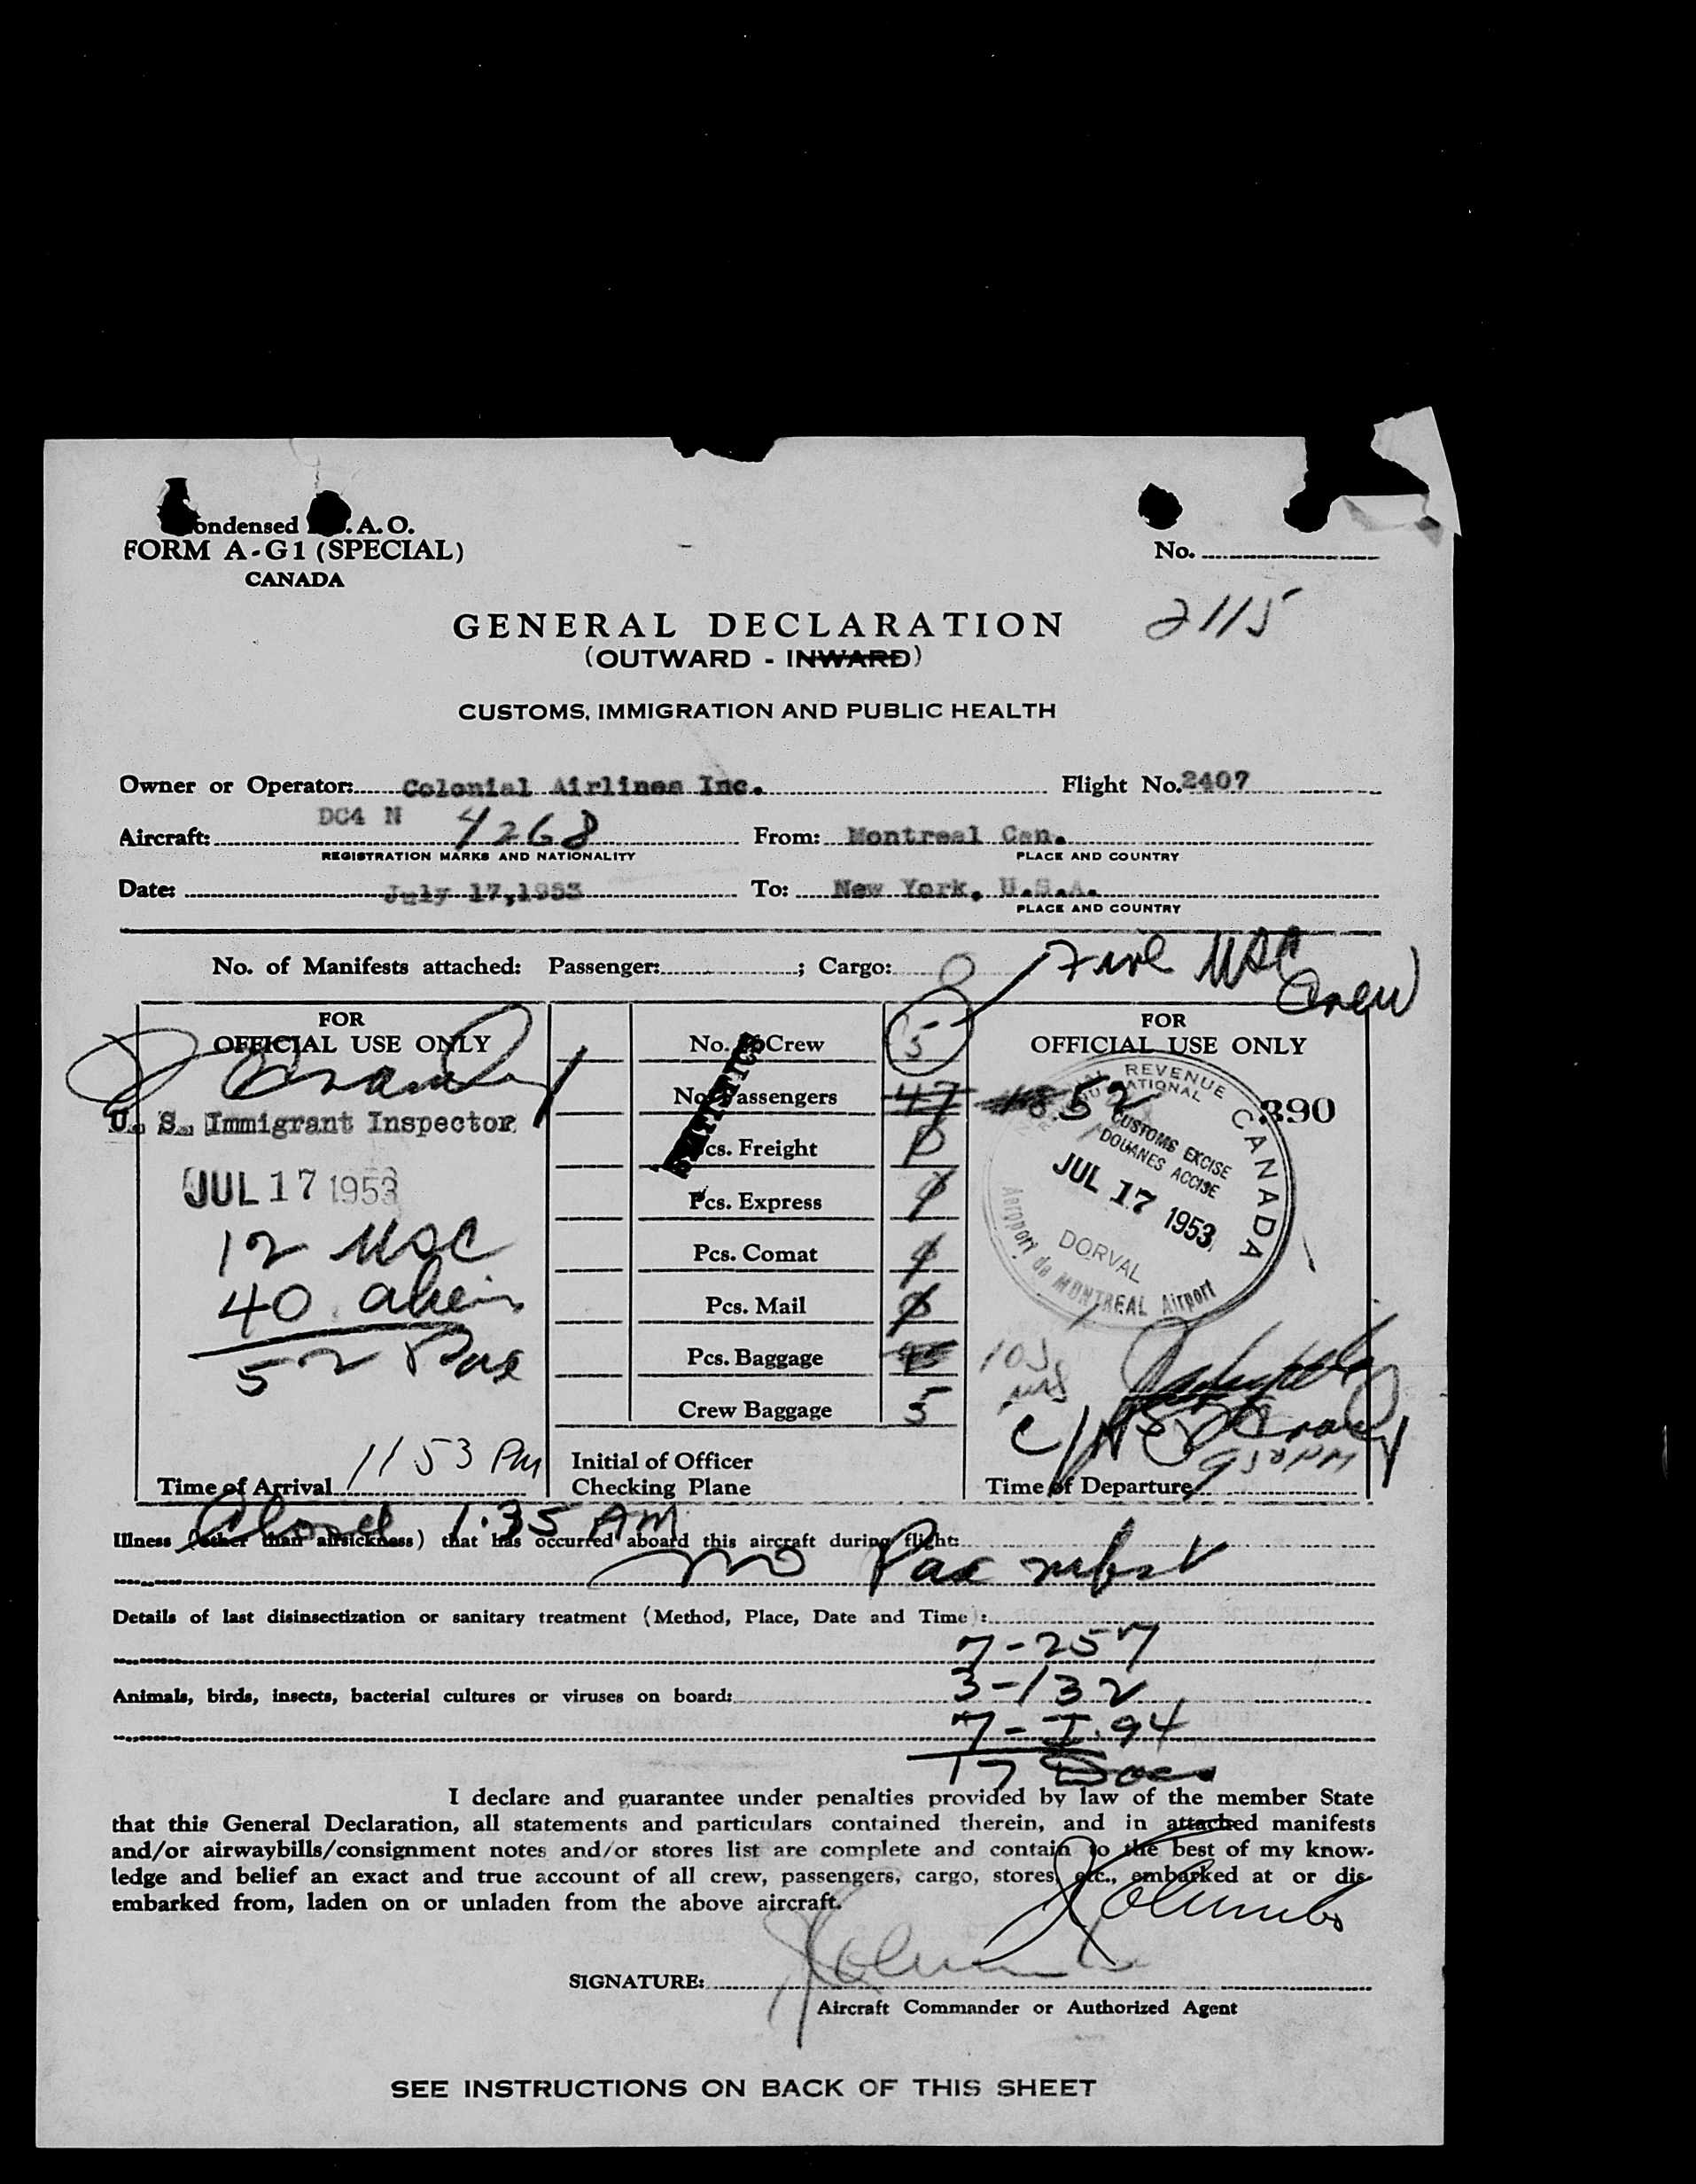 ondensed .A.O.
FORM A-G1 (SPECIAL)
CANADA
No.
2115
GENERAL DECLARATION
(OUTWARD - INWARD)
CUSTOMS, IMMIGRATION AND PUBLIC HEALTH
Owner or Operator: Colonial Airlines Inc. Flight No. 2407
Aircraft: DC4 N 4268 From: Montreal Can.
REGISTRATION MARKS AND NATIONALITY PLACE AND COUNTRY
Date: July 17,1953 To: New York, U.S.A.
PLACE AND COUNTRY
No. of Manifests attached: Passenger: ; Cargo: 0 Five USC
Crew
FOR
OFFICIAL USE ONLY
U. S. Immigrant Inspector
JUL 17 1953
12 USC
40 alien
52 Pax
Time of Arrival 1153 PM
No. Crew 5
No. Passengers 47 52
cs. Freight 0
Pcs. Express 0
Pcs. Comat 0
Pcs. Mail 0
Pcs. Baggage 103
Crew Baggage 5
Initial of Officer
Checking Plane
FOR
OFFICIAL USE ONLY
390
REVENUE
NATIONAL
CANADA
CUSTOMS EXCISE
DOUANES ACCISE
JUL 17 1953
DORVAL
Aeroport de MONTREAL Airport
Time of Departure 950 PM
Closed 1:35 AM
Illness (other than airsickness) that has occurred aboard this aircraft during flight:
no Pax
Details of last disinsectization or sanitary treatment (Method, Place, Date and Time):
7-257
3-132
Animals, birds, insects, bacterial cultures or viruses on board:
7-I.94
17 Docs
I declare and guarantee under penalties provided by law of the member State
that this General Declaration, all statements and particulars contained therein, and in attached manifests
and/or airwaybills/consignment notes and/or stores list are complete and contain to the best of my know-
ledge and belief an exact and true account of all crew, passengers, cargo, stores, etc., embarked at or dis-
embarked from, laden on or unladen from the above aircraft.
SIGNATURE:
Aircraft Commander or Authorized Agent
SEE INSTRUCTIONS ON BACK OF THIS SHEET